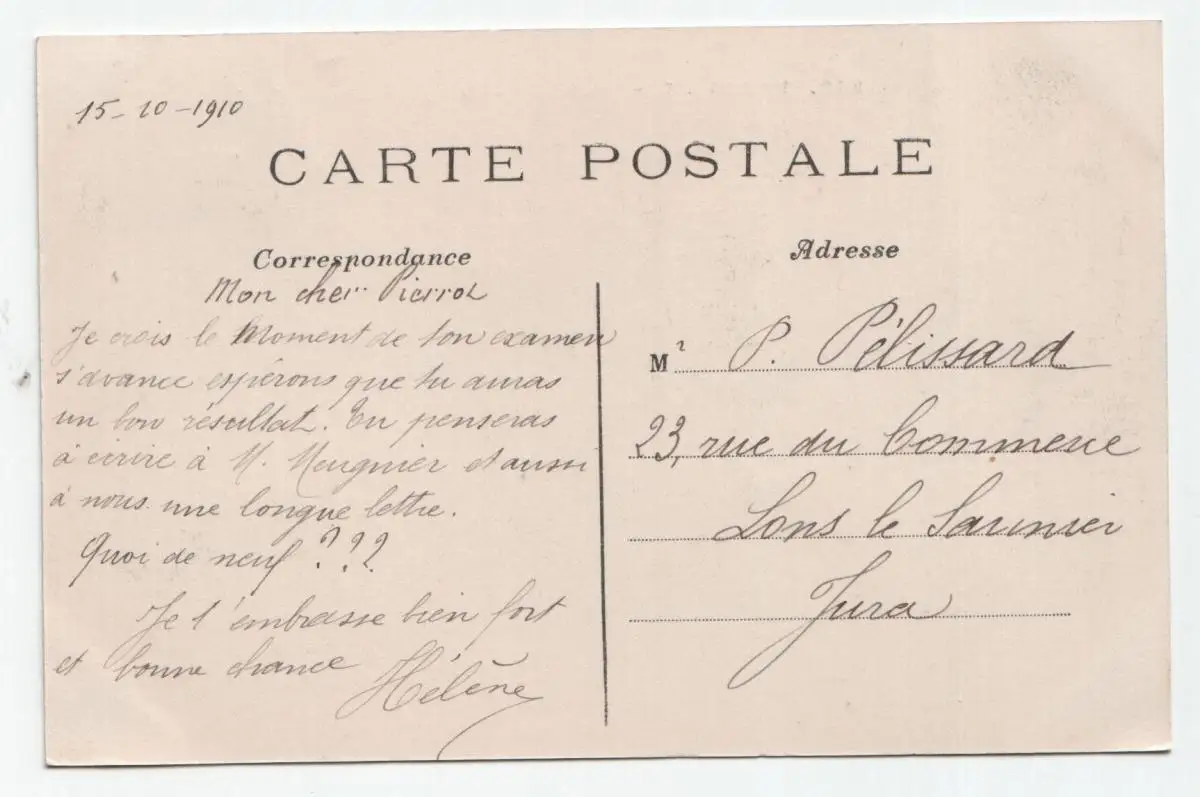 15-10-1910
CARTE POSTALE
Correspondance
Mon cher Pierrot
Je crois le Moment de ton examen
s'avance espérons que tu auras
un bon résultat. Tu penseras
à écrire à M. Meugnier et aussi
à nous une longue lettre.
Quoi de neuf ???
Je t'embrasse bien fort
et bonne chance
Hélène
Adresse
Mr P. Pélissard
23, rue du Commerce
Lons le Saunier
Jura